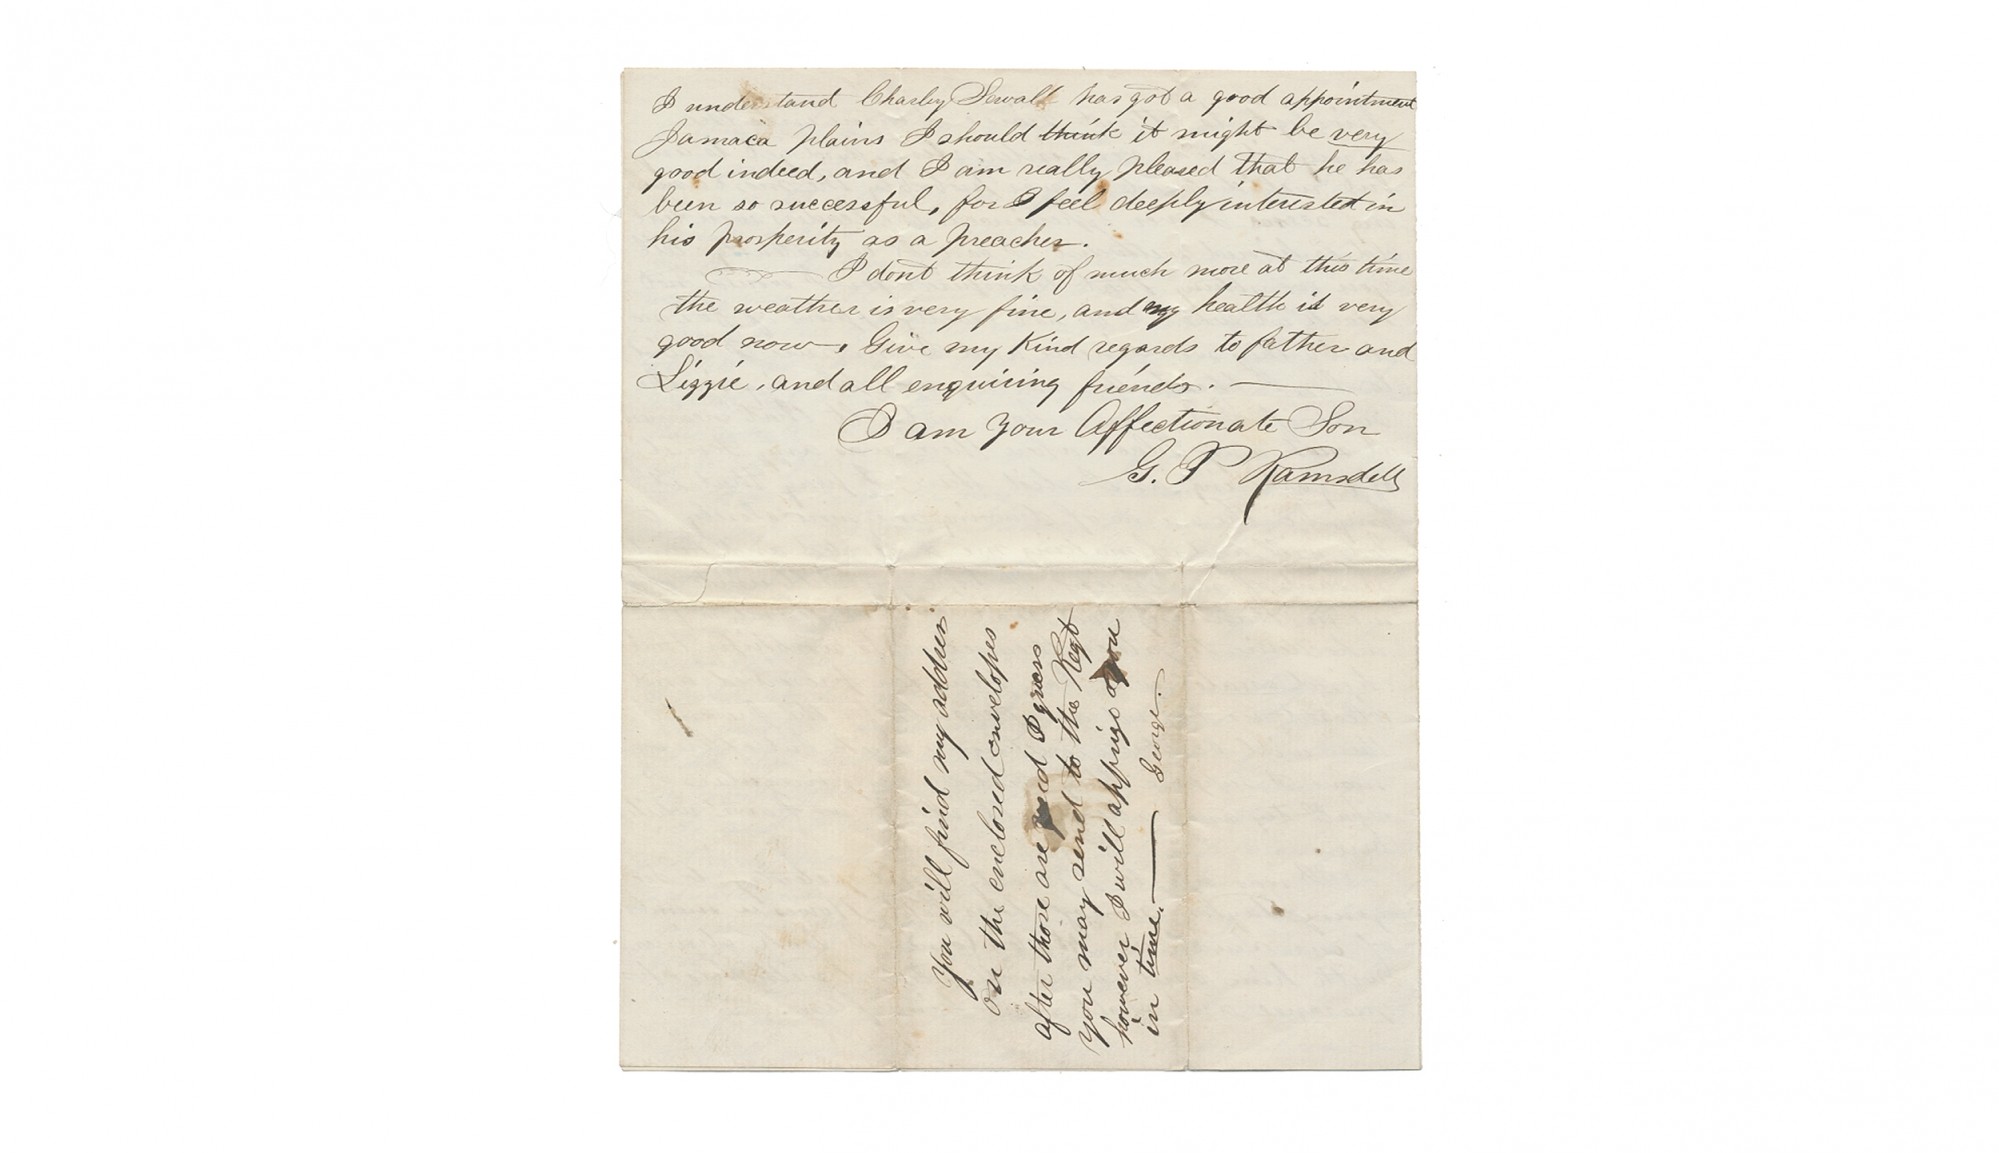 I understand Charley Sewall has got a good appointment
Jamaca plains I should think it might be very
good indeed, and I am really pleased that he has
been so successful, for I feel deeply interested in
his prosperity as a preacher.
I dont think of much more at this time
the weather is very fine, and my health is very
good now, Give my Kind regards to father and
Lizzie, and all enquiring friends.
I am your Affectionate Son
G. P Ramsdell
You will find my address
on the enclosed envelopes
after those are used I guess
you may send to the Regt
however I will apprise you
in time.
George.